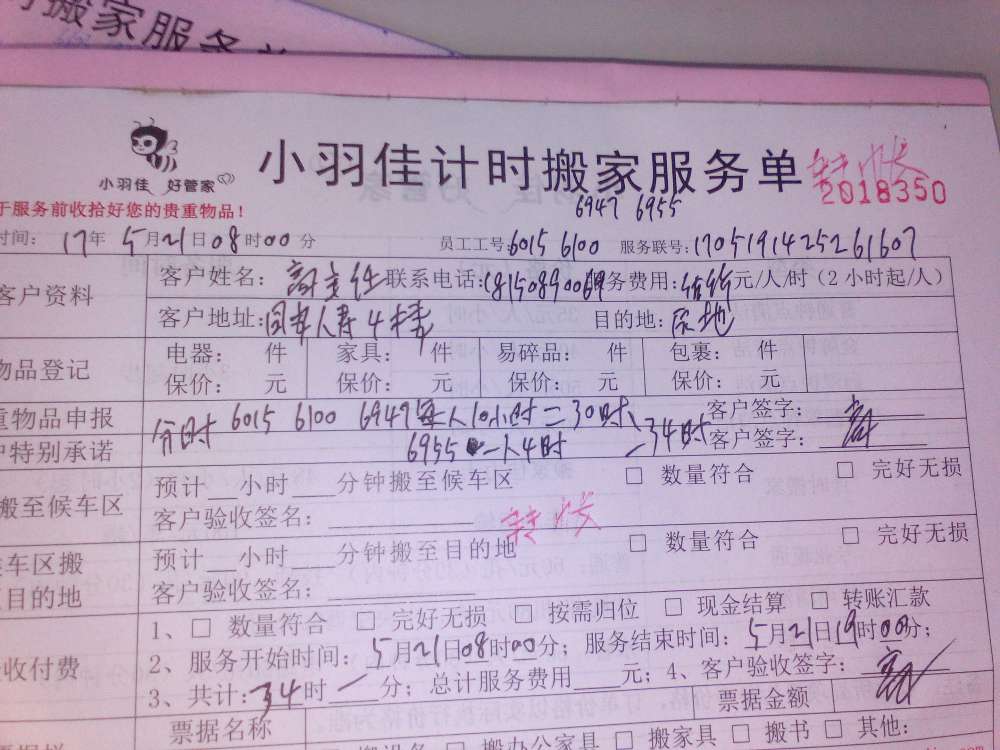 搬家服务单
小羽佳 好管家
小羽佳计时搬家服务单
转账
2018350
于服务前收拾好您的贵重物品！
6947 6955
时间： 17年 5月21日08时00分 员工工号：6015 6100 服务联号：1705191425261607
客户资料
客户姓名： 高主任 联系电话： 服务费用： 元/人/时（2小时起/人）
客户地址：国寿人寿4楼 目的地：原地
物品登记
电器： 件 家具： 件 易碎品： 件 包裹： 件
保价： 元 保价： 元 保价： 元 保价： 元
重物品申报
分时 6015 6100 6947每人10小时=30时、 客户签字：
中特别承诺
6955 一人4时 34时 客户签字：
搬至候车区
预计__小时___分钟搬至候车区 □ 数量符合 □ 完好无损
客户验收签名：
转账
车区搬
目的地
预计__小时___分钟搬至目的地 □ 数量符合 □ 完好无损
客户验收签名：
收付费
1、□ 数量符合 □ 完好无损 □ 按需归位 □ 现金结算 □ 转账汇款
2、服务开始时间：5月21日08时00分；服务结束时间：5月21日19时00分；
3、共计：34时 分；总计服务费用 元；4、客户验收签字：
票据名称 票据金额
□ 搬办公家具 □ 搬家具 □ 搬书 □ 其他：